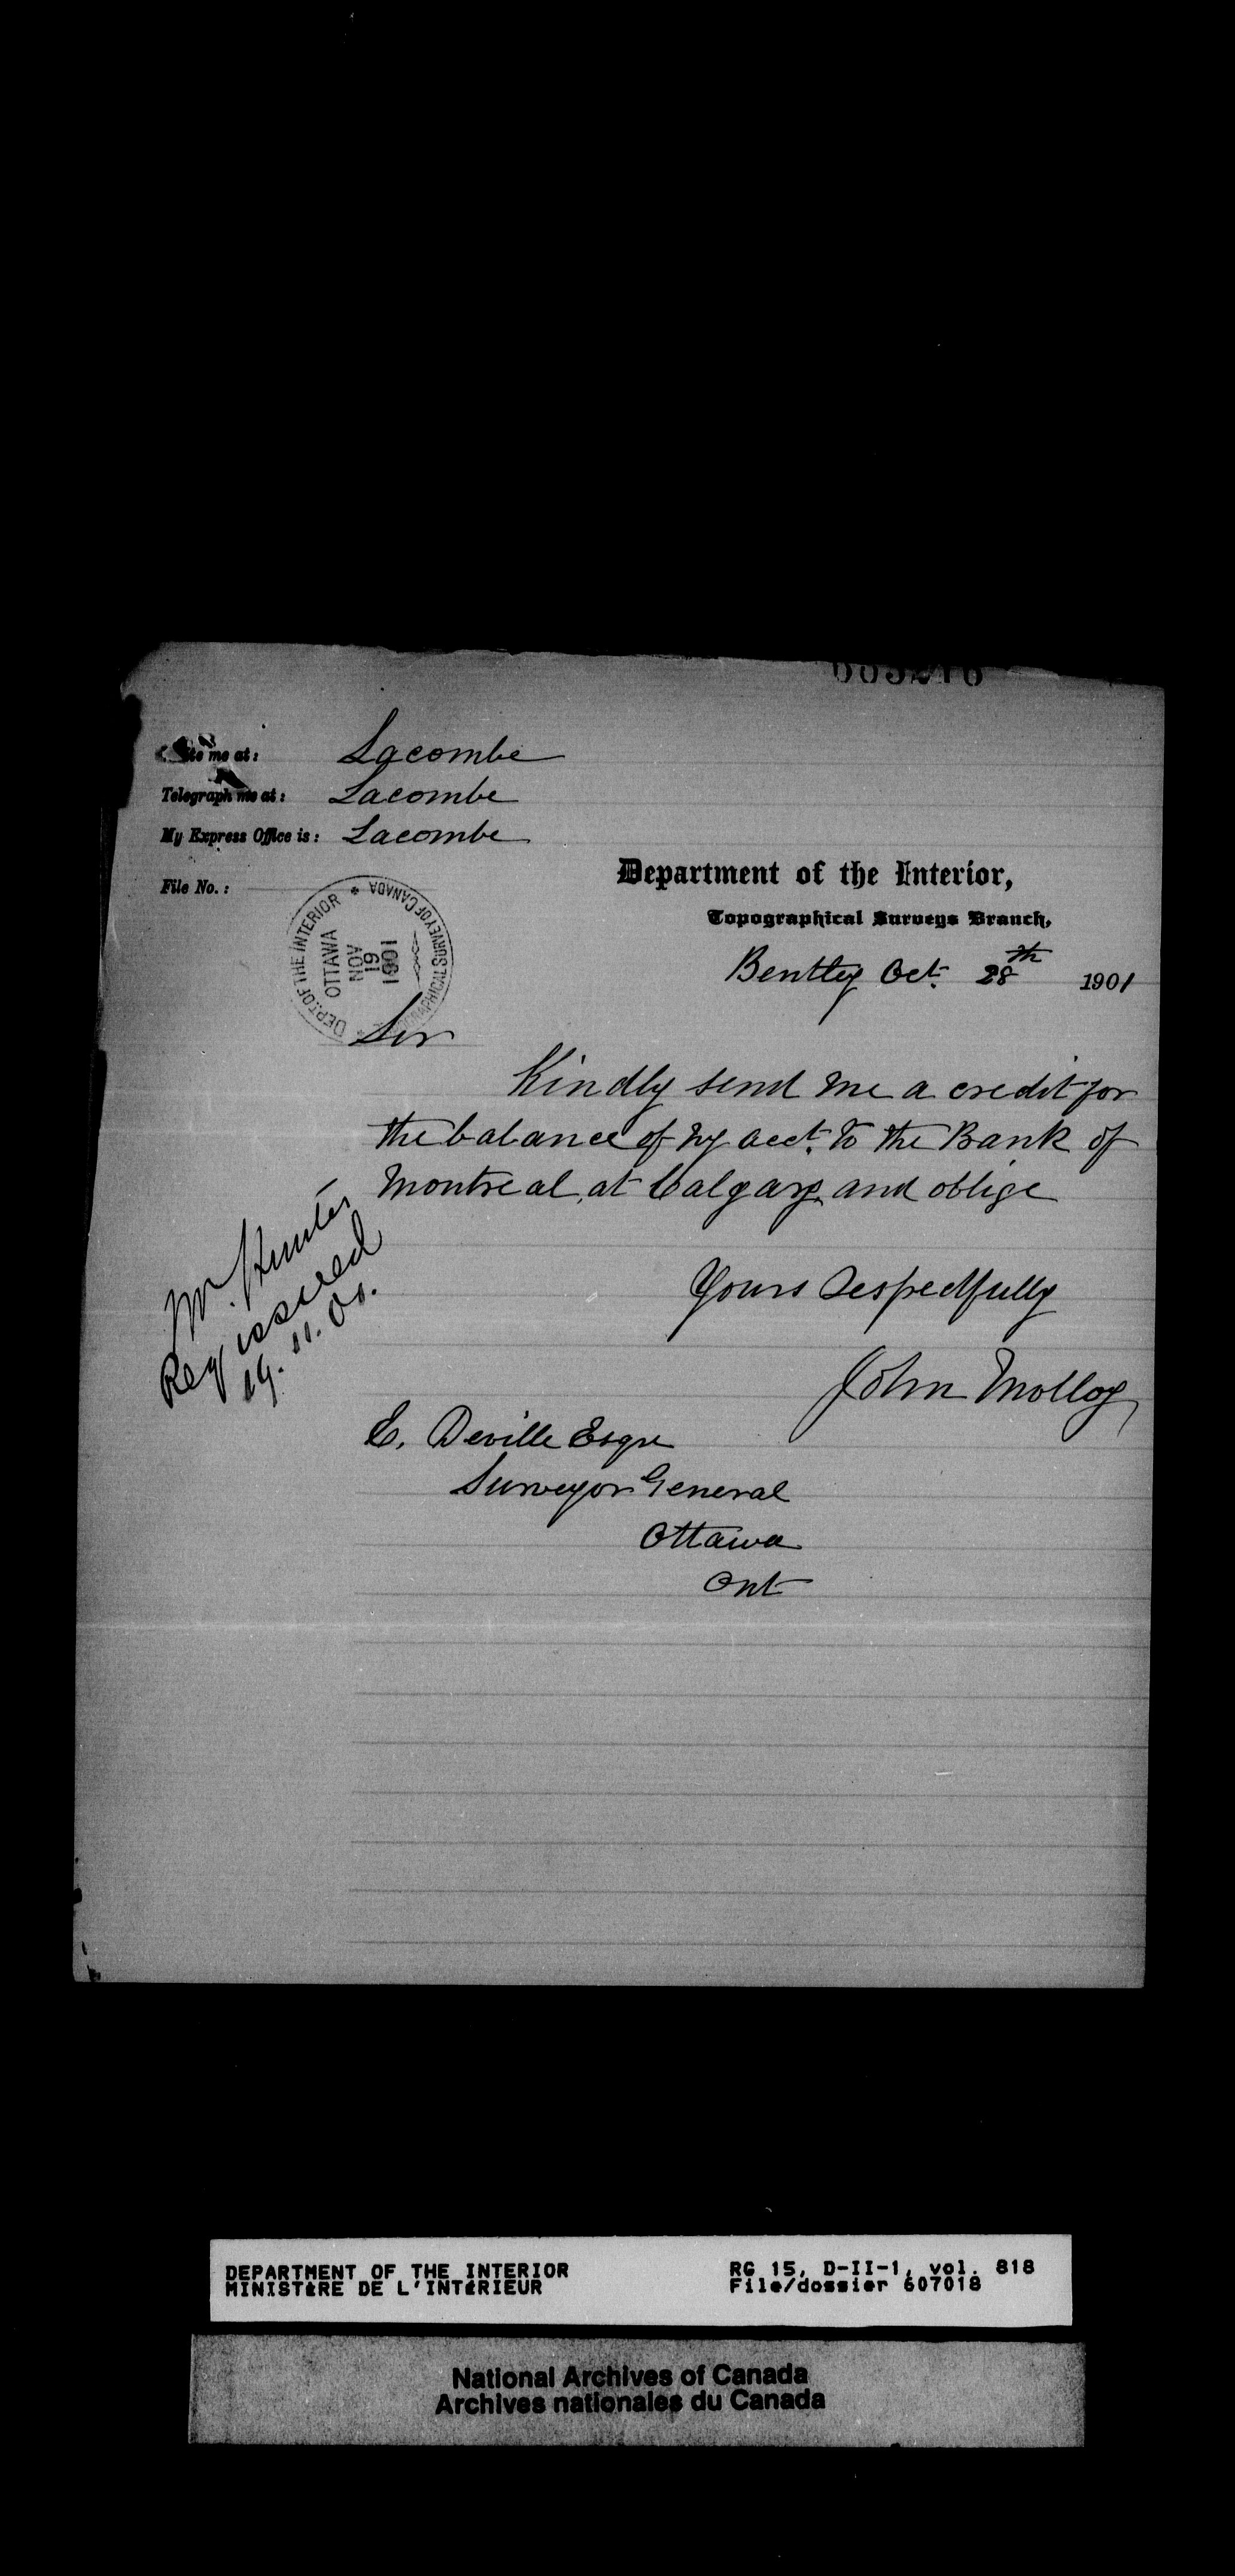 Lacombe
Telegraph me at: Lacombe
My Express Office is: Lacombe
File No.:
Department of the Interior,
Topographical Surveys Branch,
DEPT. OF THE INTERIOR * TOPOGRAPHICAL SURVEY OF CANADA *
OTTAWA
NOV
19
1901
Bentley Oct. 28th 1901
Sir
Kindly send me a credit for
the balance of my acct. to the Bank of
Montreal, at Calgary and oblige
Yours Respectfully
John Molloy
Mr. Hunter
Req issued
19. 11. 01.
E. Deville Esqre
Surveyor General
Ottawa
Ont
DEPARTMENT OF THE INTERIOR
MINISTÈRE DE L'INTÉRIEUR
RG 15, D-II-1, vol. 818
File/dossier 607018
National Archives of Canada
Archives nationales du Canada